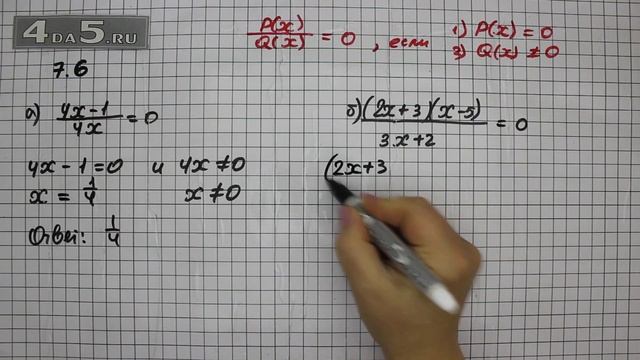 4DA5.RU
P(x)/Q(x) = 0, если 1) P(x) = 0
3) Q(x) ≠ 0
7.6
а) 4x-1/4x = 0
4x - 1 = 0 и 4x ≠ 0
x = 1/4 x ≠ 0
Ответ: 1/4
б) (2x+3)(x-5)/3x+2 = 0
(2x+3